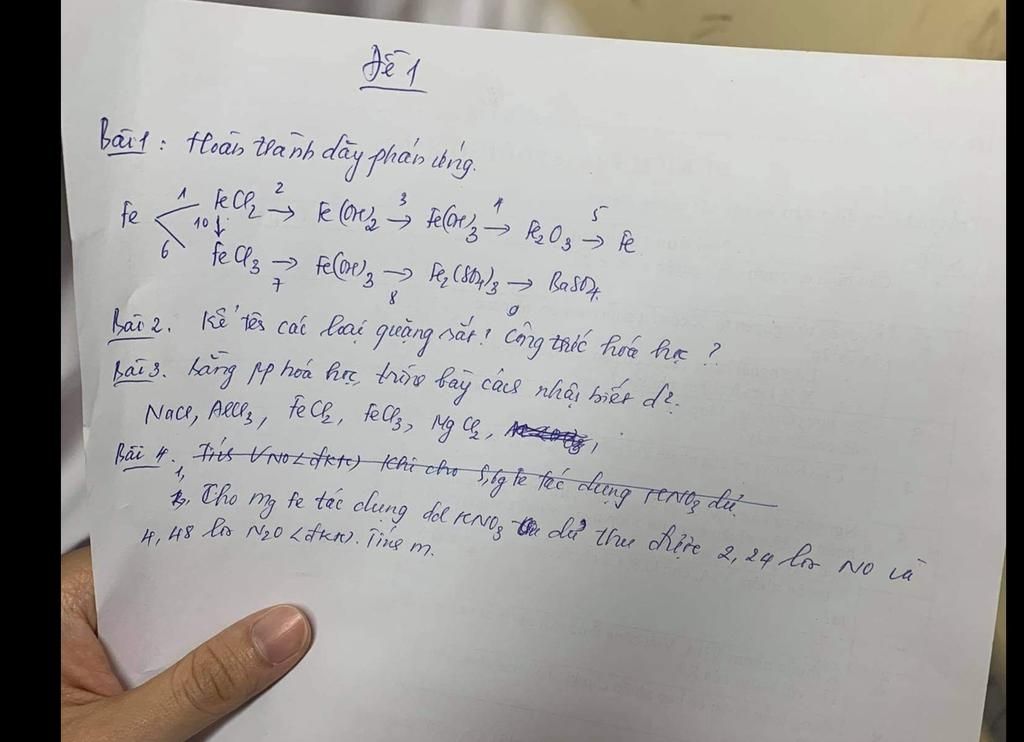 Đề 1
Bài 1 : Hoàn thành dãy phản ứng.
1 FeCl2 2 → Fe(OH)2 3 → Fe(OH)3 4 → Fe2O3 5 → Fe
Fe 10 ↓
6 FeCl3 → 7 Fe(OH)3 → 8 Fe2(SO4)3 → 9 BaSO4
Bài 2. Kể tên các loại quặng sắt! Công thức hoá học ?
Bài 3. Bằng pp hoá học, trình bày cách nhận biết d2.
NaCl, AlCl3, FeCl2, FeCl3, MgCl2, ,
Bài 4. Tính VNO (đktc) khi cho 5,6g Fe tác dụng HNO3 dư.
1, Cho mg Fe tác dụng dd HNO3 dư thu được 2,24 lít NO và
4,48 lít N2O (đktc). Tính m.